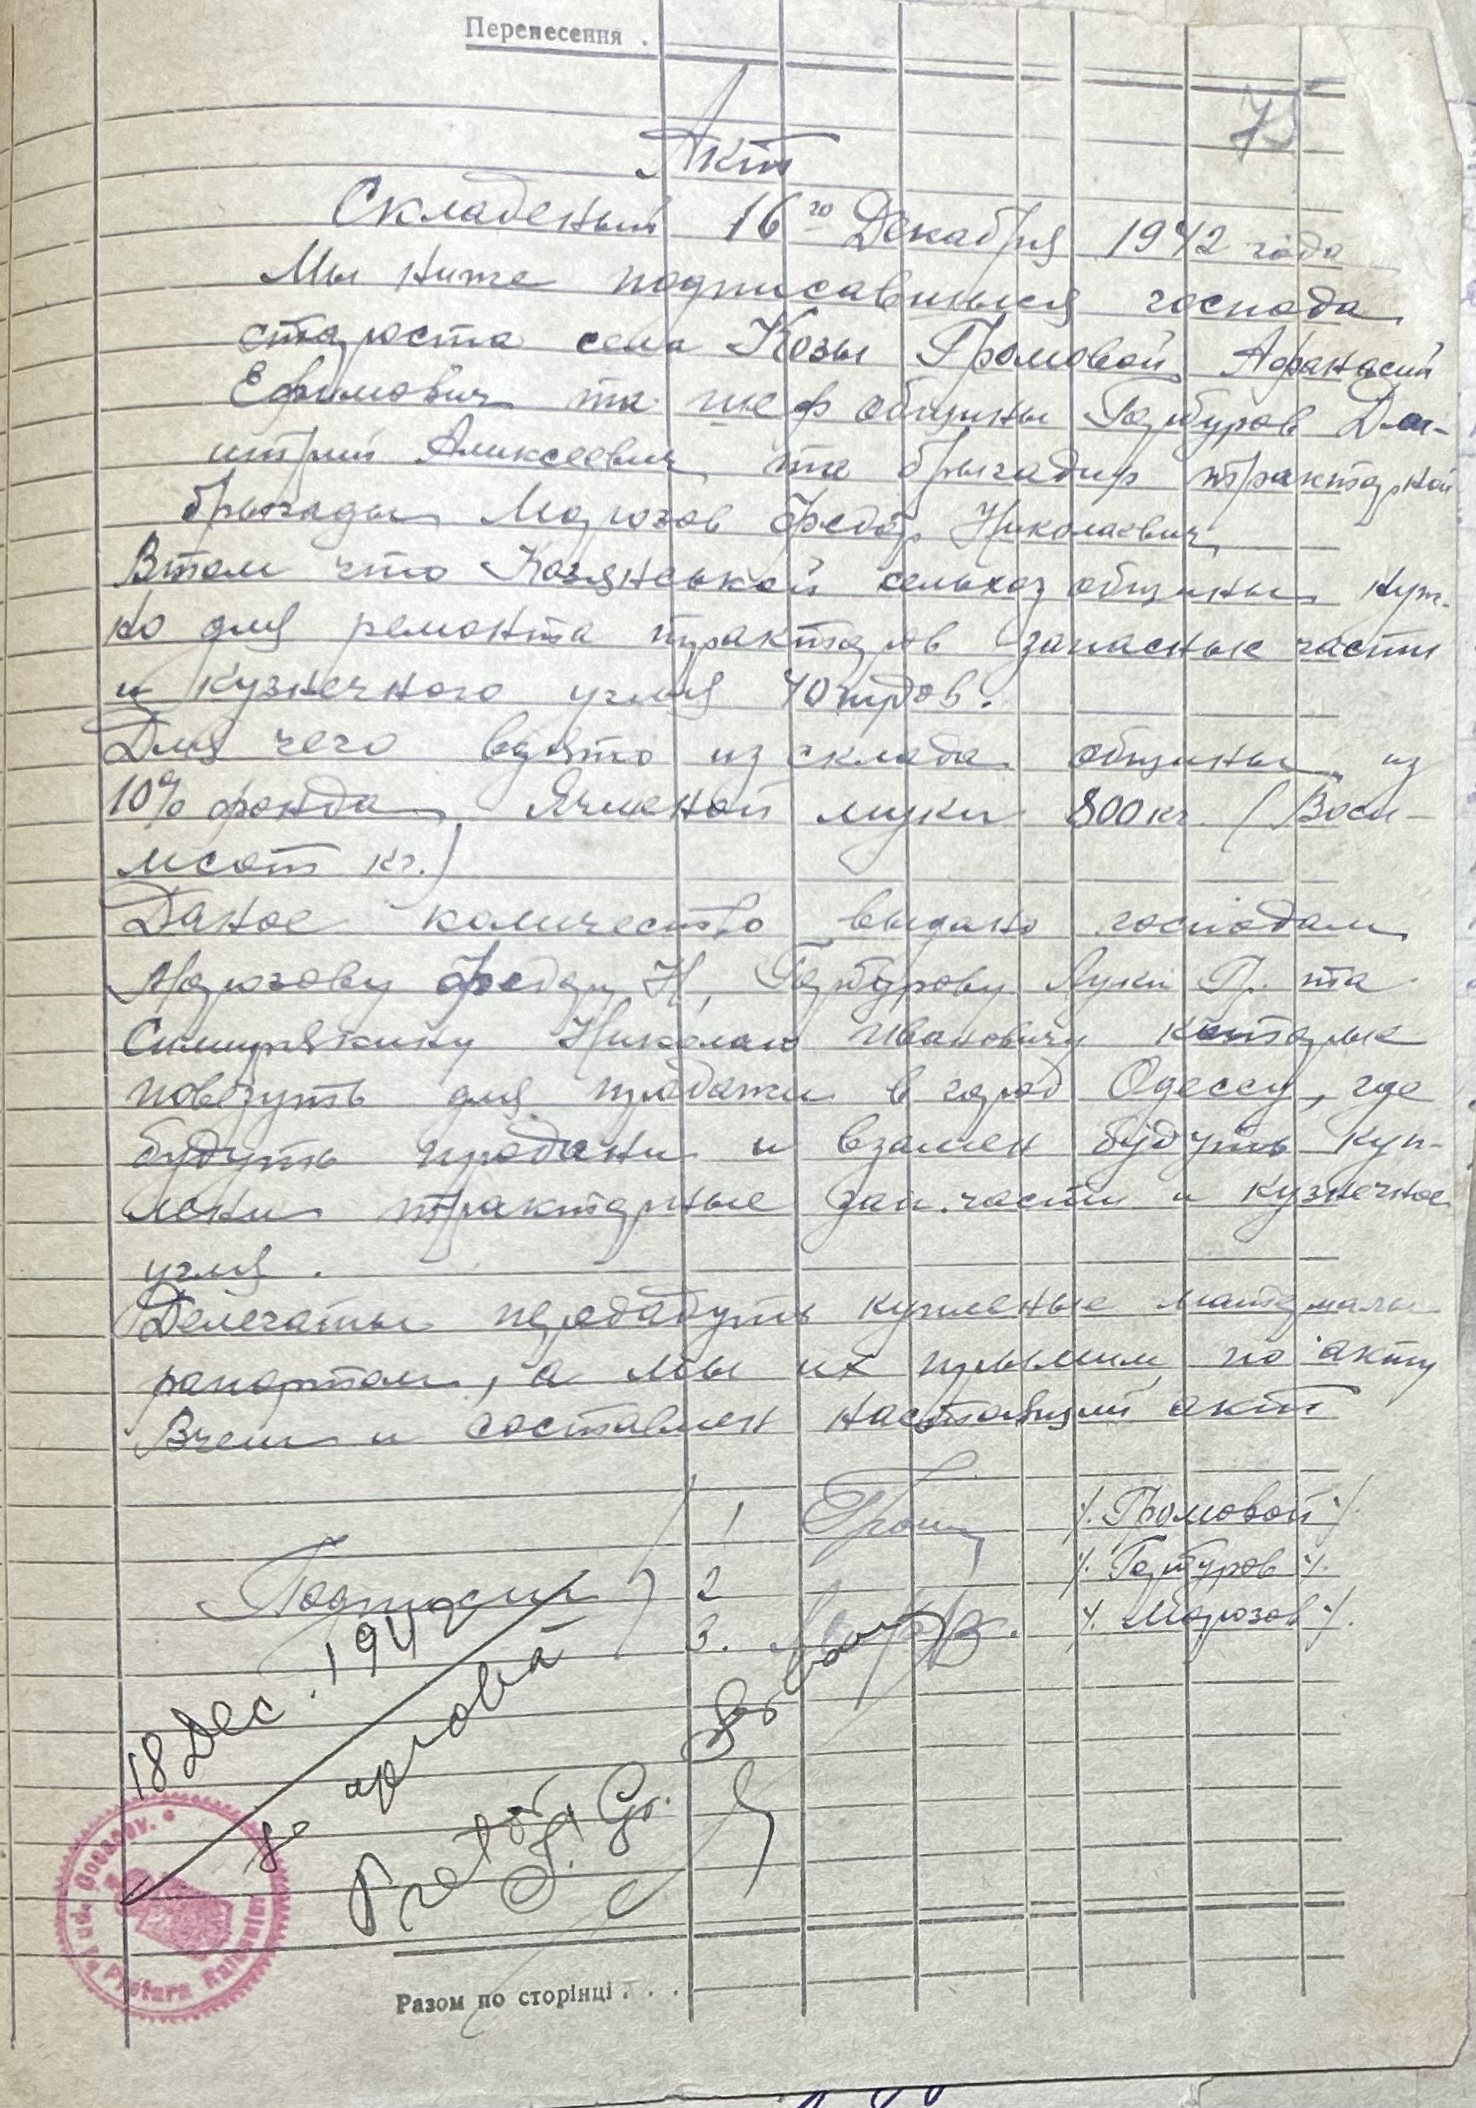 Перенесення .
75
Акт
Складеный 16го Декабря 1942 года
Мы ниже подписавшыеся господа
староста села Козы Громовой Афанасий
Ефимович та шеф общины Гамбуров Дми-
итрий Аликсеевич та брыгадир тракторной
брыгады Морозов Федор Николаевич
Втом что Козянськой сельхоз общины нуж-
но для ремонта тракторов запасные части
и кузнечного угля 40 пудов.
Для чего взято из склада общины из
10% фонда Ячменой муки 800 кг. (Восе-
мсот кг.)
Даное количество выдано господам
Морозову Федору Н, Гамбурову Луки Гр. та
Николаю Ивановичу которые
повезуть для продажи в город Одессу, где
будуть продани и взамен будуть куп-
лени тракторные зап. части и кузнечное
угля.
Делегаты передадуть купленые материалы
рапортом, а мы их прымим по акту
Вчем и составлен настоящий акт
Подписи
1 /. Громовой /.
2 /. Гамбуров /.
3. /. Морозов /.
18 Dec. 1942
Se aprobă
Pretor
Gr.
Guvern. Jud. Oceacov. • Pretura Raionului
Разом по сторінці . . .